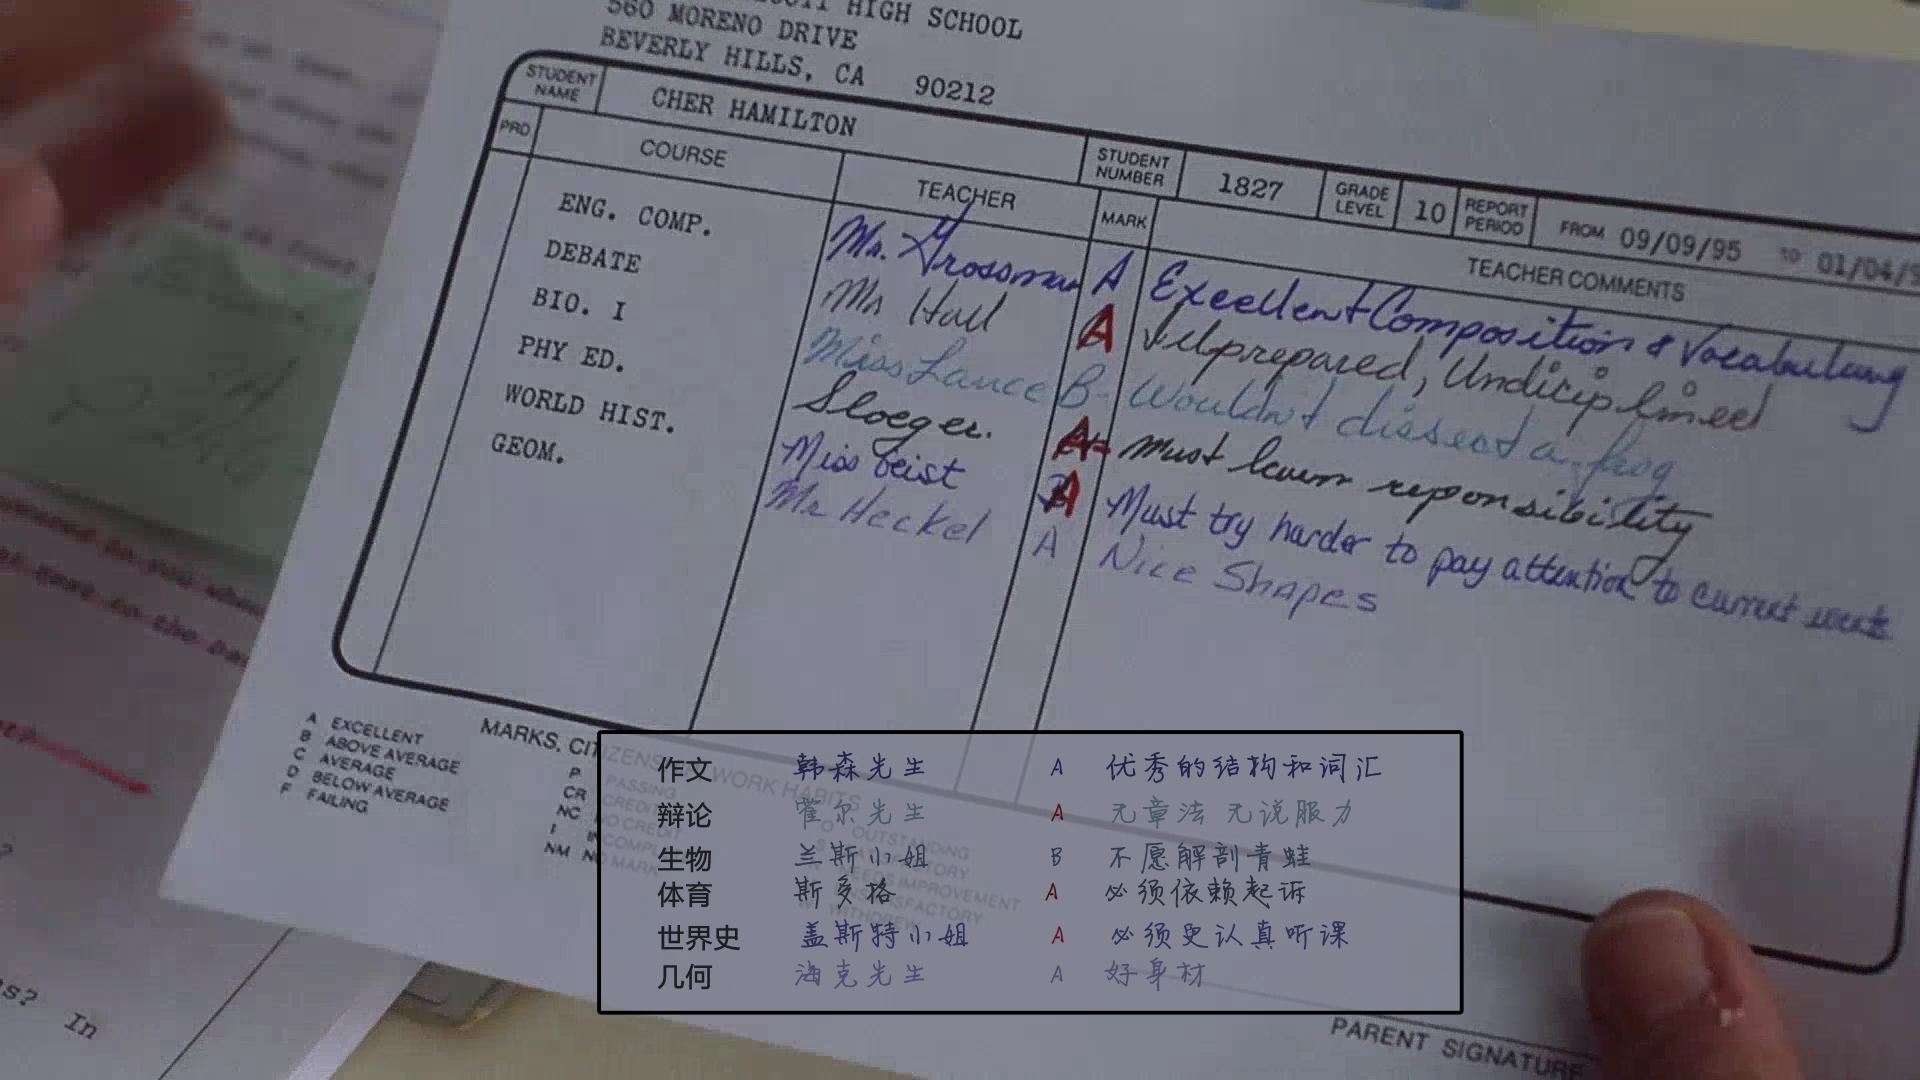 HIGH SCHOOL
560 MORENO DRIVE
BEVERLY HILLS, CA 90212
STUDENT NAME CHER HAMILTON STUDENT NUMBER 1827 GRADE LEVEL 10 REPORT PERIOD FROM 09/09/95 TO 01/04/9
PRD COURSE TEACHER MARK TEACHER COMMENTS
ENG. COMP. Mr. Grossman A Excellent Composition & Vocabulary
DEBATE Mr Hall A prepared, Undiciplined
BIO. I Miss Lance B- Wouldn't dissect a frog
PHY ED. Sloeger. A Must learn reponsibility
WORLD HIST. Miss Geist A Must try harder to pay attention to current
GEOM. Mr Heckel A Nice Shapes
A EXCELLENT
B ABOVE AVERAGE
C AVERAGE
D BELOW AVERAGE
F FAILING
MARKS, CITIZENS WORK HABITS
P PASSING
CR CREDIT
NC NO CREDIT
I
NM
OUTSTANDING
NEEDS IMPROVEMENT
作文 韩森先生 A 优秀的结构和词汇
辩论 霍尔先生 A 无章法 无说服力
生物 兰斯小姐 B 不愿解剖青蛙
体育 斯多格 A 必须依赖起诉
世界史 盖斯特小姐 A 必须更认真听课
几何 海克先生 A 好身材
PARENT SIGNATURE
s? In